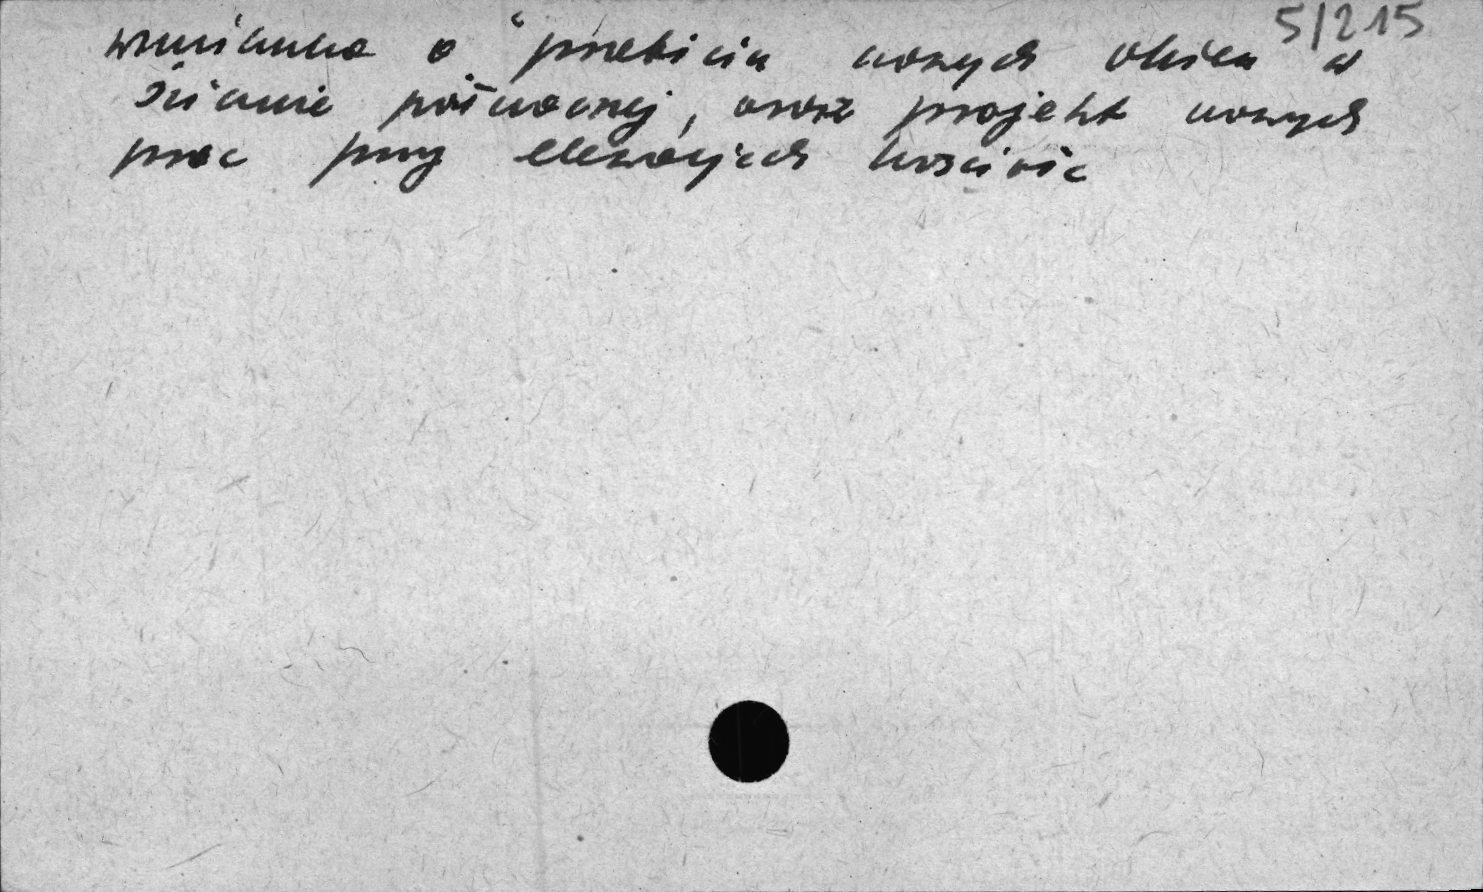 5/215
wzmianka o przebiciu nowych okien w
ścianie północnej, oraz projekt nowych
prac przy elewacjach kościoła